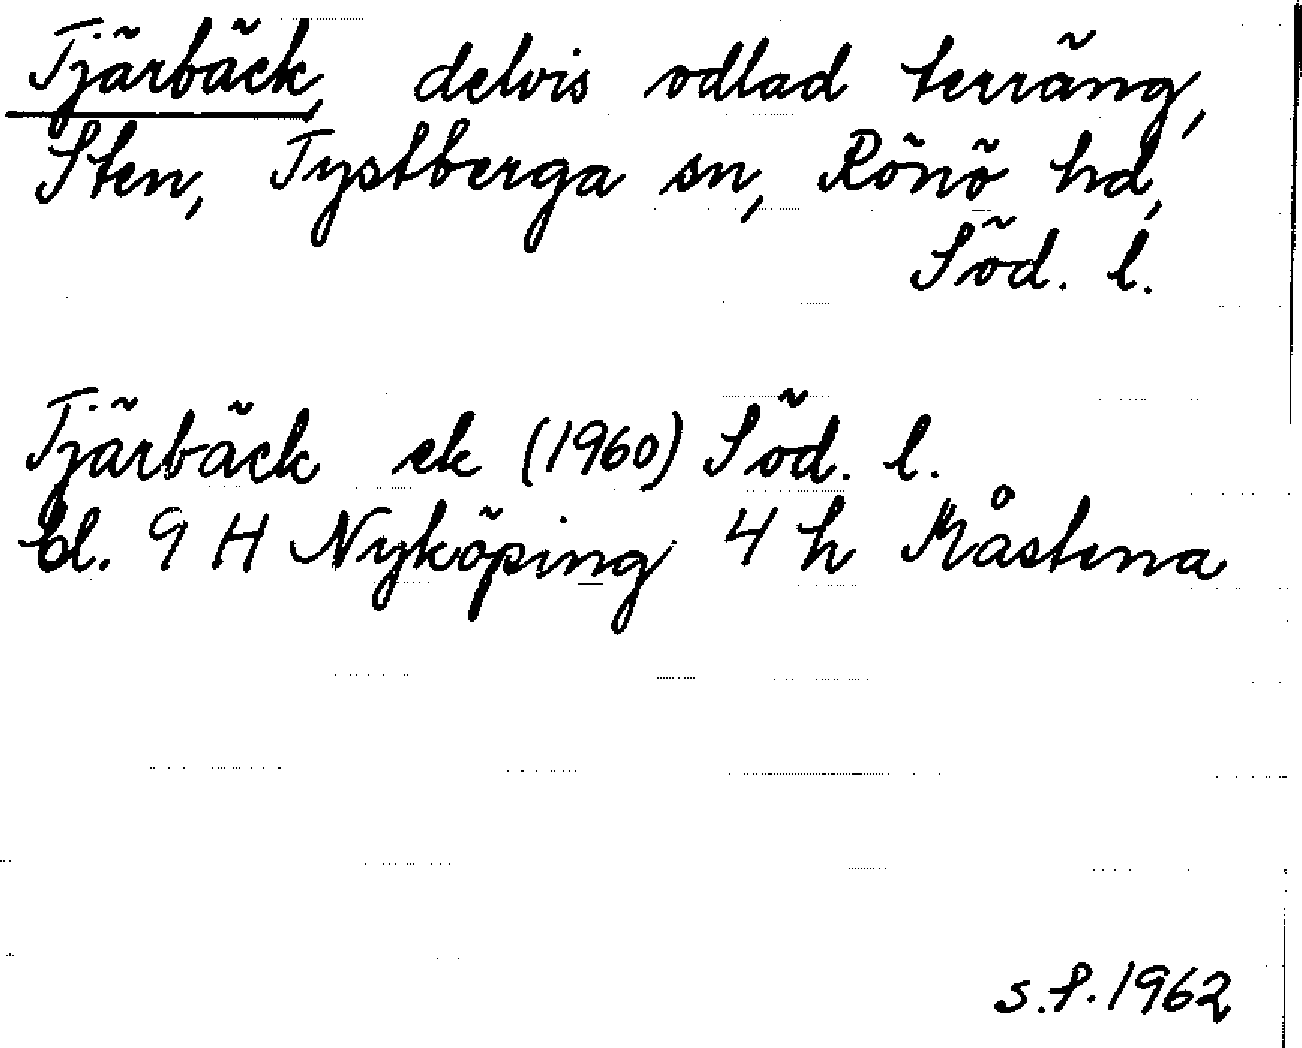 Tjärbäck, delvis odlad terräng,
Sten, Tystberga sn, Rönö hd,
Söd. l.
Tjärbäck ek (1960) Söd. l.
bl. 9 H Nyköping 4 h Måstena
s.f. 1962